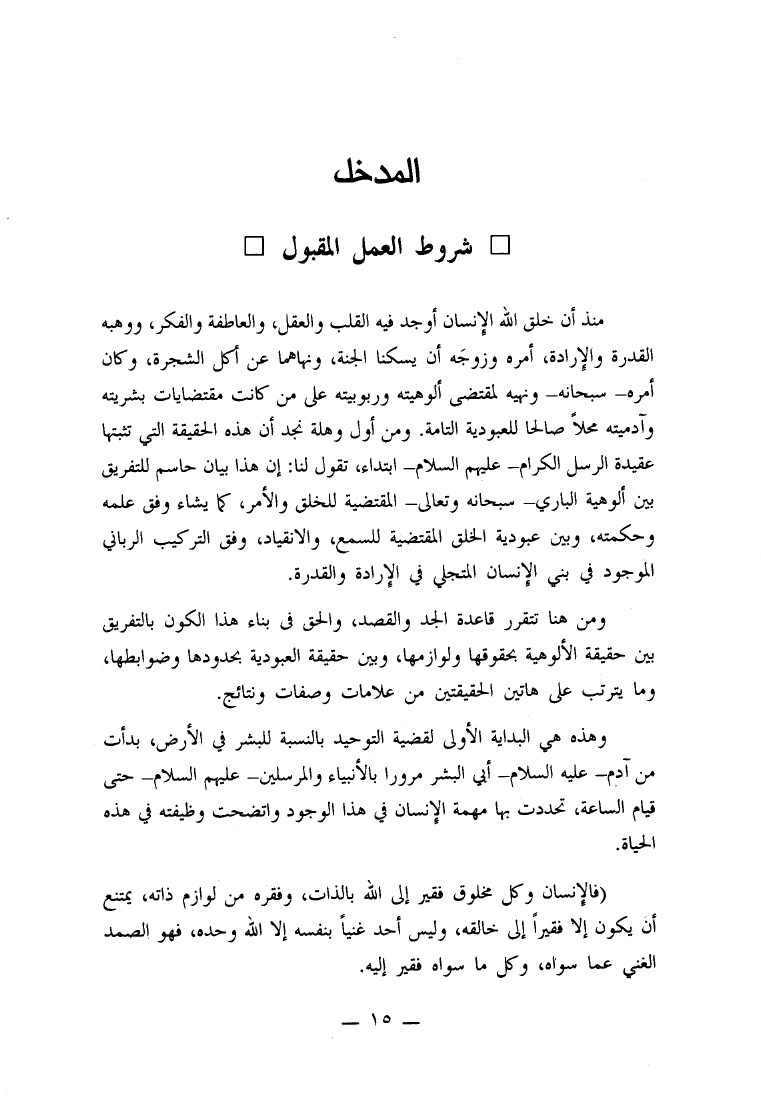 المدخل
□ شروط العمل المقبول □
منذ أن خلق الله الإنسان أوجد فيه القلب والعقل، والعاطفة والفكر، ووهبه
القدرة والإرادة، أمره وزوجَه أن يسكنا الجنة، ونهاهما عن أكل الشجرة، وكان
أمره– سبحانه– ونهيه لمقتضى ألوهيته وربوبيته على من كانت مقتضايات بشريته
وآدميته محلاً صالحا للعبودية التامة. ومن أول وهلة نجد أن هذه الحقيقة التي تثبتها
عقيدة الرسل الكرام– عليهم السلام– ابتداء، تقول لنا: إن هذا بيان حاسم للتفريق
بين ألوهية الباري– سبحانه وتعالى– المقتضية للخلق والأمر، كما يشاء وفق علمه
وحكمته، وبين عبودية الخلق المقتضية للسمع، والانقياد، وفق التركيب الرباني
الموجود في بني الإنسان المتجلي في الإرادة والقدرة.
ومن هنا تتقرر قاعدة الجد والقصد، والحق فى بناء هذا الكون بالتفريق
بين حقيقة الألوهية بحقوقها ولوازمها، وبين حقيقة العبودية بحدودها وضوابطها،
وما يترتب على هاتين الحقيقتين من علامات وصفات ونتائج.
وهذه هي البداية الأولى لقضية التوحيد بالنسبة للبشر في الأرض، بدأت
من آدم– عليه السلام– أبي البشر مرورا بالأنبياء والمرسلين– عليهم السلام– حتى
قيام الساعة، تحددت بها مهمة الإنسان في هذا الوجود واتضحت وظيفته في هذه
الحياة.
(فالإنسان وكل مخلوق فقير إلى الله بالذات، وفقره من لوازم ذاته، يمتنع
أن يكون إلا فقيراً إلى خالقه، وليس أحد غنياً بنفسه إلا الله وحده، فهو الصمد
الغني عما سواه، وكل ما سواه فقير إليه.
— ١٥ —